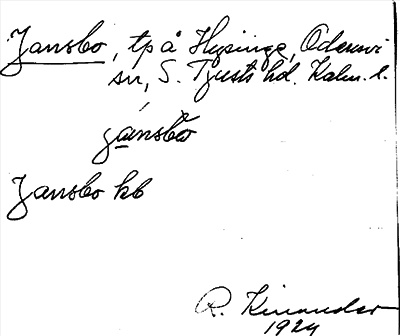 Jansbo, tp å Hysinge, Odensvi
sn, S. Tjusts hd. Kalm. l.
jánsbo
Jansbo kb
R. Kinander
1924